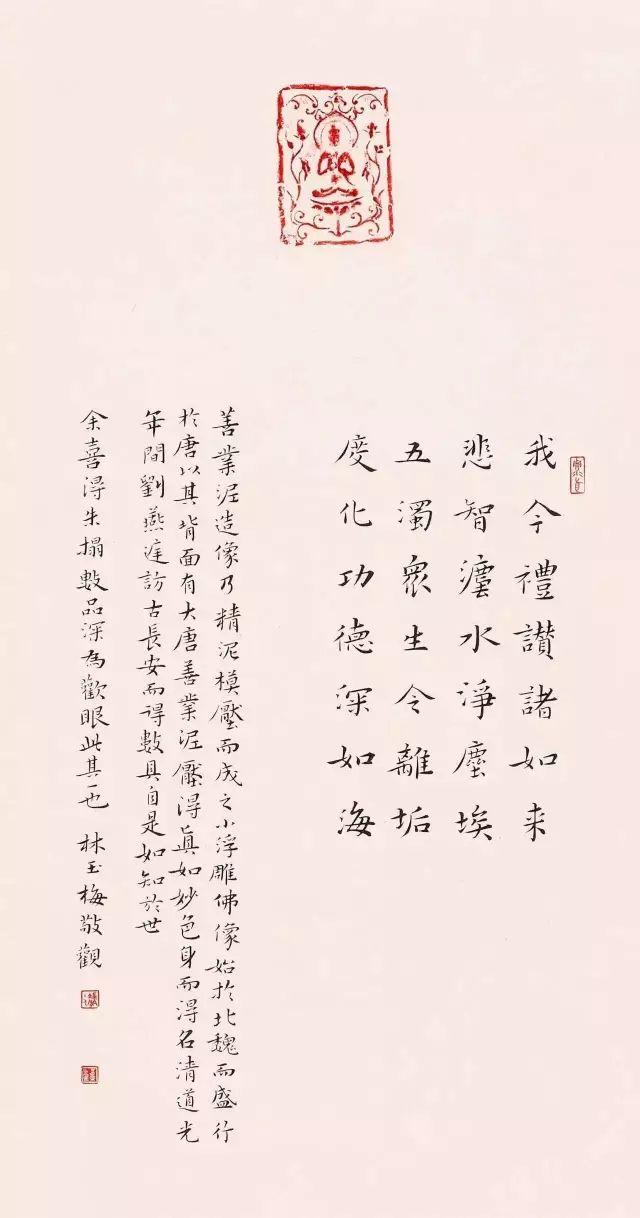 我今禮讃諸如来
悲智灋水淨塵埃
五濁眾生令離垢
度化功德深如海
善業泥造像乃精泥模壓而成之小浮雕佛像始於北魏而盛行
於唐以其背面有大唐善業泥壓得真如妙色身而得名清道光
年間劉燕庭訪古長安而得數具自是如知於世
余喜得朱搨數品深為歡眼此其一也 林玉梅敬觀